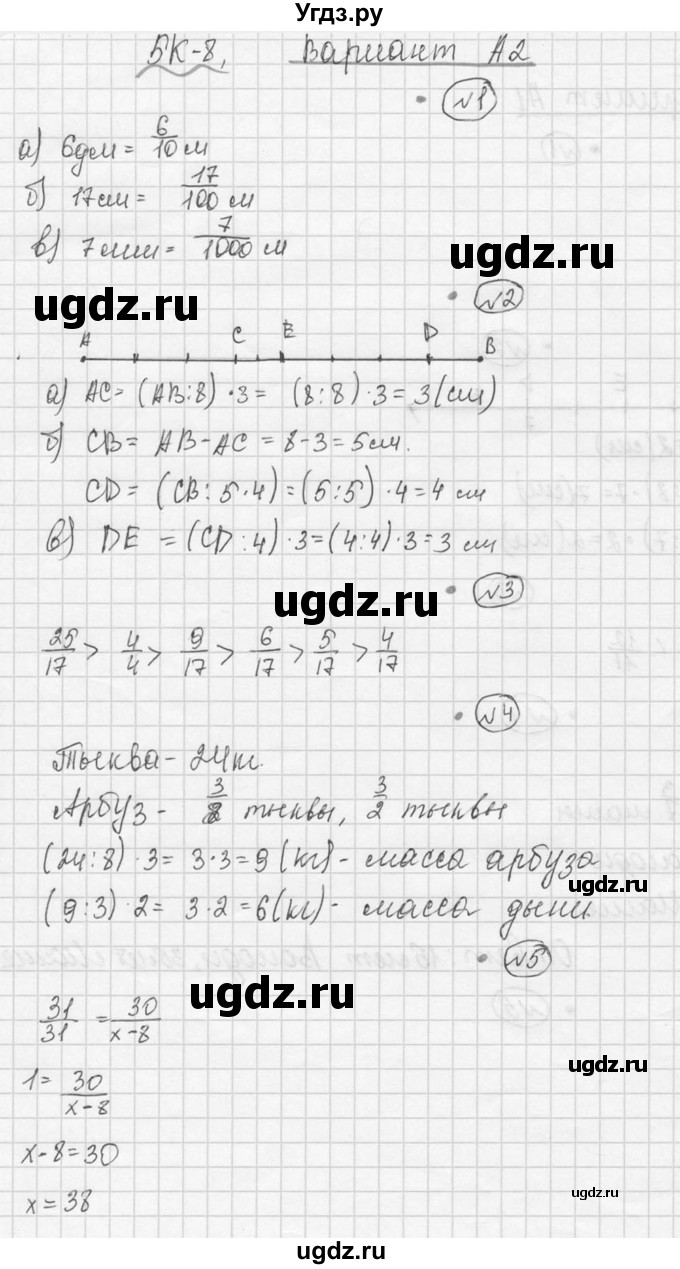 Угдз.ру
БК-8, Вариант А2
№1
а) 6дм = 6/10 м
б) 17см = 17/100 м
в) 7мм = 7/1000 м
ugdz.ru
ugdz.ru
№2
A C E D B
а) AC = (AB:8) · 3 = (8:8) · 3 = 3(см)
б) CB = AB - AC = 8 - 3 = 5см.
CD = (CB : 5 · 4) = (5:5) · 4 = 4 см
в) DE = (CD : 4) · 3 = (4:4) · 3 = 3 см
ugdz.ru
№3
25/17 > 4/4 > 9/17 > 6/17 > 5/17 > 4/17
№4
Тыква - 24кг.
Арбуз - 3/8 тыквы, 3/2 тыквы
(24:8) · 3 = 3·3 = 9 (кг) - масса арбуза
ugdz.ru
(9:3) · 2 = 3·2 = 6(кг) - масса дыни.
№5
ugdz.ru
31/31 = 30/x-8
1 = 30/x-8
ugdz.ru
x-8 = 30
x = 38
ugdz.ru
ugdz.ru